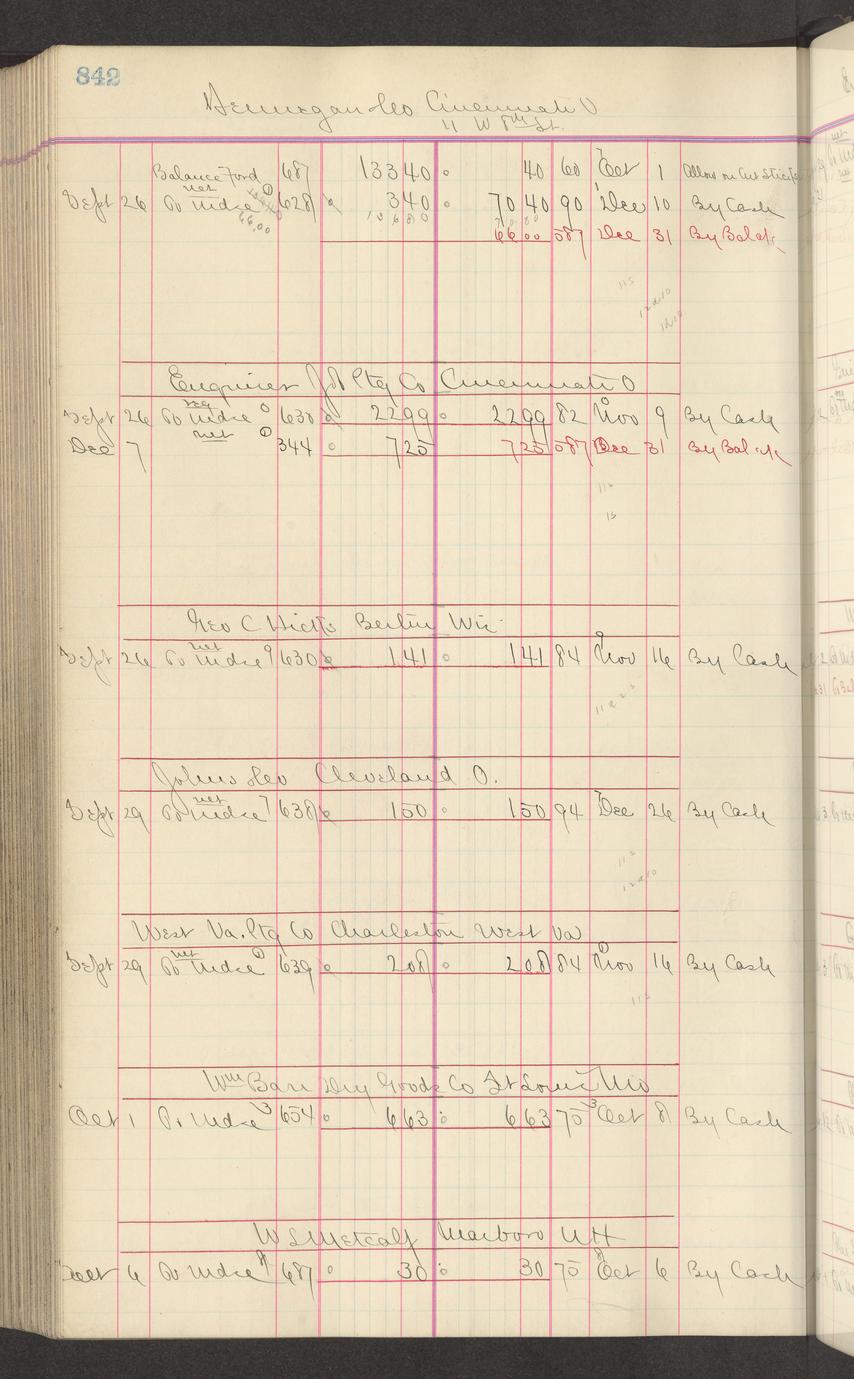 842
Hennegan & Co Cincinnati O
11 W 8th St.
Balance Ford 687 13340 40 60 Oct 1 Allons on Cut Stic
Sept 26 To Mdse net 628 340 7040 90 Dec 10 By Cash
66.00 10680
6600 587 Dec 31 By Balce
Enquirer Job Ptg Co Cincinnati O
Sept 26 To Mdse 630 2299 2299 82 Nov 9 By Cash
Dec 7 net 344 725 725 587 Dec 31 By Balce
115
15
Geo C Hicks Berlin Wis
Sept 26 To Mdse net 9 630 141 141 84 Nov 16 By Cash
Johns & Co Cleveland O.
Sept 29 To Mdse net 7 638 150 150 94 Dec 26 By Cash
West Va. Ptg Co Charleston West Va
Sept 29 To Mdse net 639 208 208 84 Nov 16 By Cash
Wm Barr Dry Goods Co St Louis Mo
Oct 1 To Mdse 3 654 663 663 75 Oct 8 By Cash
W S Metcalf Marlboro NH
Oct 6 To Mdse 9 687 30 30 75 Oct 6 By Cash